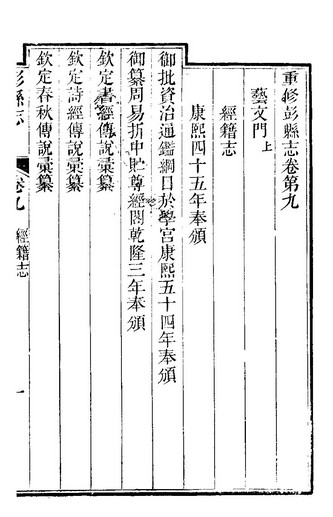 重修彭縣志卷第九
藝文門上
經籍志
康熙四十五年奉頒
御批資治通鑑綱目於學宮康熙五十四年奉頒
御纂周易折中貯尊經閣乾隆三年奉頒
欽定書經傳說彙纂
欽定詩經傳說彙纂
欽定春秋傳說彙纂
彭縣志 卷九 經籍志 一